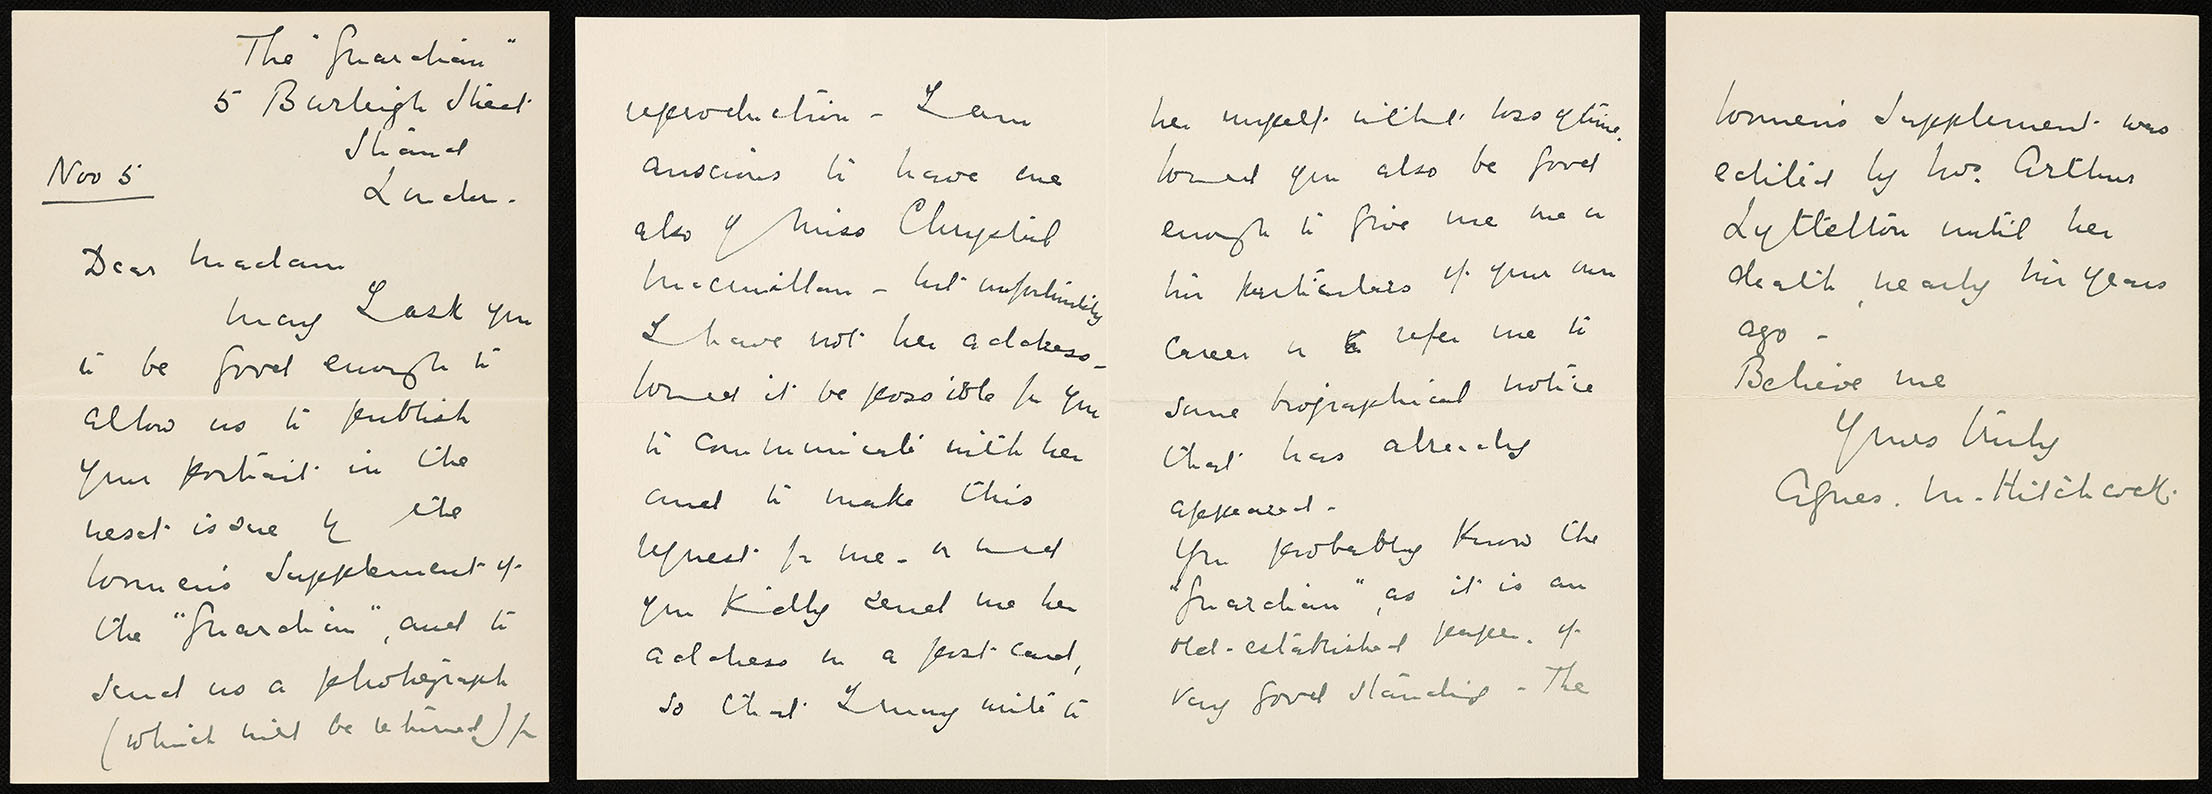 The "Guardian"
5 Burleigh Street
Strand
London.
Nov 5
Dear Madam
May I ask you
to be good enough to
allow us to publish
your portrait in the
next issue of the
Women's Supplement of
the "Guardian", and to
send us a photograph
(which will be returned) for
reproduction - I am
anxious to have one
also of Miss Chrystal
Macmillan - but unfortunately
I have not her address -
Would it be possible for you
to communicate with her
and to make this
request for me - or would
you kindly send me her
address on a post-card,
so that I may write to
her myself without loss of time.
Would you also be good
enough to give me one or
two particulars of your own
career or refer me to
some biographical notice
that has already
appeared -
You probably know the
"Guardian", as it is an
old-established paper, of
very good standing - The
Women's Supplement was
edited by Mrs. Arthur
Lyttelton until her
death, nearly two years
ago -
Believe me
Yours truly
Agnes. M. Hitchcock.